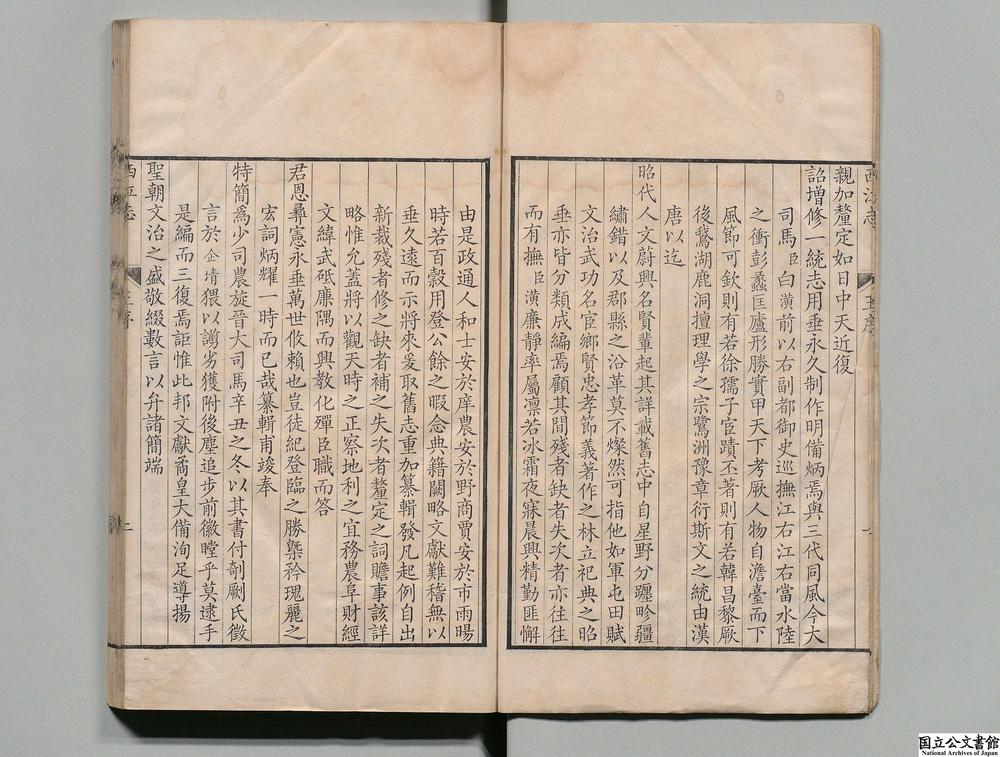 西江志
王序
一
親加釐定如日中天近復
詔增修一統志用垂永久制作明備炳焉與三代同風今大
司馬臣白潢前以右副都御史巡撫江右江右當水陸
之衝彭蠡匡廬形勝實甲天下考厥人物自澹臺而下
風節可欽則有若徐孺子宦蹟丕著則有若韓昌黎厥
後鵞湖鹿洞擅理學之宗鷺洲豫章衍斯文之統由漢
唐以迄
昭代人文蔚興名賢輩起其詳載舊志中自星野分躔畛疆
繡錯以及郡縣之沿革莫不燦然可指他如軍屯田賦
文治武功名宦鄉賢忠孝節義著作之林立祀典之昭
垂亦皆分類成編焉顧其間殘者缺者失次者亦往往
而有撫臣潢廉靜率屬凛若冰霜夜寐晨興精勤匪懈
由是政通人和士安於庠農安於野商賈安於市雨暘
時若百穀用登公餘之暇念典籍闕略文獻難稽無以
垂久遠而示將來爰取舊志重加纂輯發凡起例自出
新裁殘者修之缺者補之失次者釐定之詞贍事該詳
略惟允蓋將以觀天時之正察地利之宜務農阜財經
文緯武砥廉隅而興教化殫臣職而答
君恩彝憲永垂萬世攸賴也豈徒紀登臨之勝槩矜瑰麗之
宏詞炳耀一時而已哉纂輯甫竣奉
特簡爲少司農旋晉大司馬辛丑之冬以其書付剞劂氏徵
言於企埥猥以譾劣獲附後塵追步前徽瞠乎莫逮手
是編而三復焉詎惟此邦文獻矞皇大備洵足導揚
聖朝文治之盛敬綴數言以弁諸簡端
西江志
王序
二
国立公文書館
National Archives of Japan